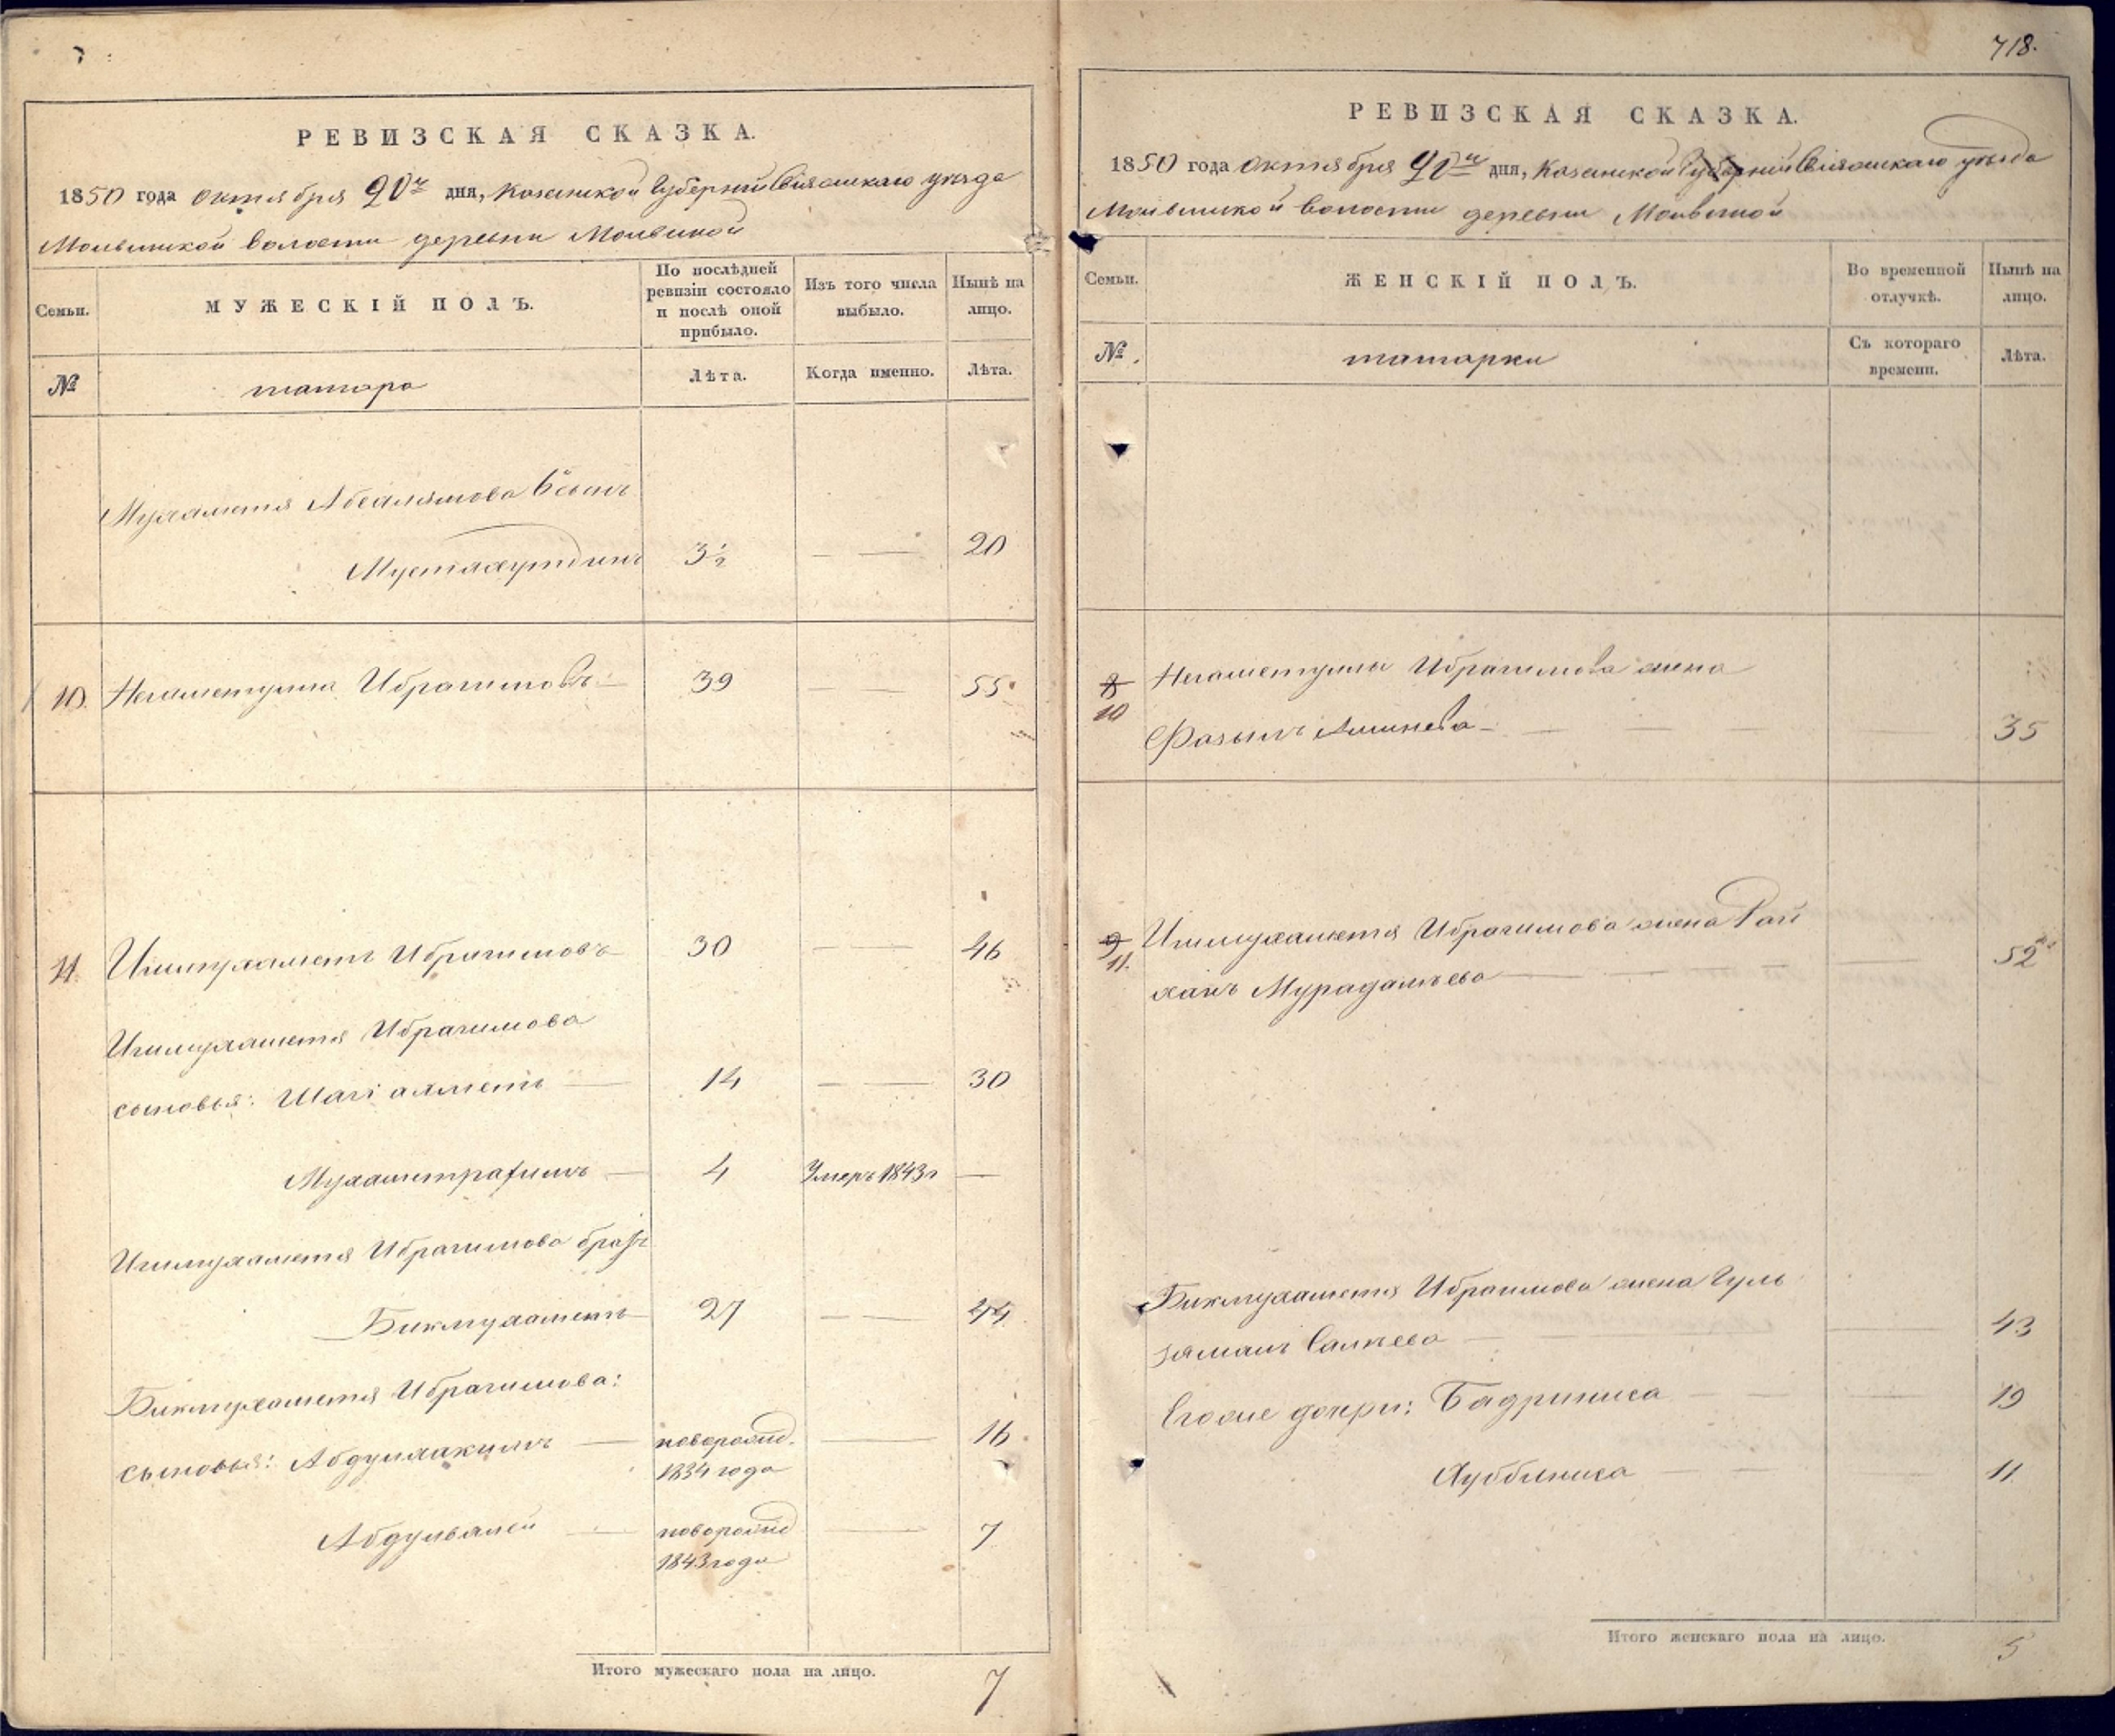 РЕВИЗСКАЯ СКАЗКА.
1850 года октября 20го дня, Казанской Губернии Свіяжскаго уѣзда
Молвинской волости деревни Молвиной
Семьи.
МУЖЕСКІЙ ПОЛЪ.
По послѣдней ревизіи состояло и послѣ оной прибыло.
Изъ того числа выбыло.
Нынѣ на лицо.
№
татара
Лѣта.
Когда именно.
Лѣта.
Мухаметя Абсалямова 6й сынъ
Мустахутдинъ 3½ — — 20
10. Негаметулла Ибрагимовъ — 39 — — 55
11. Ишмухаметъ Ибрагимовъ — 30 — — 46
Ишмухаметя Ибрагимова
сыновья: Шагіахметъ — 14 — — 30
Мухаметрафикъ — 4 Умеръ 1843 г —
Ишмухаметя Ибрагимова братъ
Бикмухаметъ 27 — — 44
Бикмухаметя Ибрагимова:
сыновья: Абдулхакимъ — новорожд. — 16
1834 года
Абдулвалей — новорожд — 7
1843 года
Итого мужескаго пола на лицо. 7
718.
РЕВИЗСКАЯ СКАЗКА.
1850 года октября 20го дня, Казанской Губерніи Свіяжскаго уѣзда
Молвинской волости деревни Молвиной
Семьи.
ЖЕНСКІЙ ПОЛЪ.
Во временной отлучкѣ.
Нынѣ на лицо.
№.
татарки
Съ котораго времени.
Лѣта.
8 Негаметуллы Ибрагимова жена
10 Фазылъ — — — 35
9 Ишмухаметя Ибрагимова жена Рай
11. ханъ Мурадалѣева — — — 52
Бикмухаметя Ибрагимова жена Гуль
заманъ Салѣева — — 43
Егоже дочери: Бадриниса — — — 19
Хуббиниса — — — 11.
Итого женскаго пола на лицо. 5